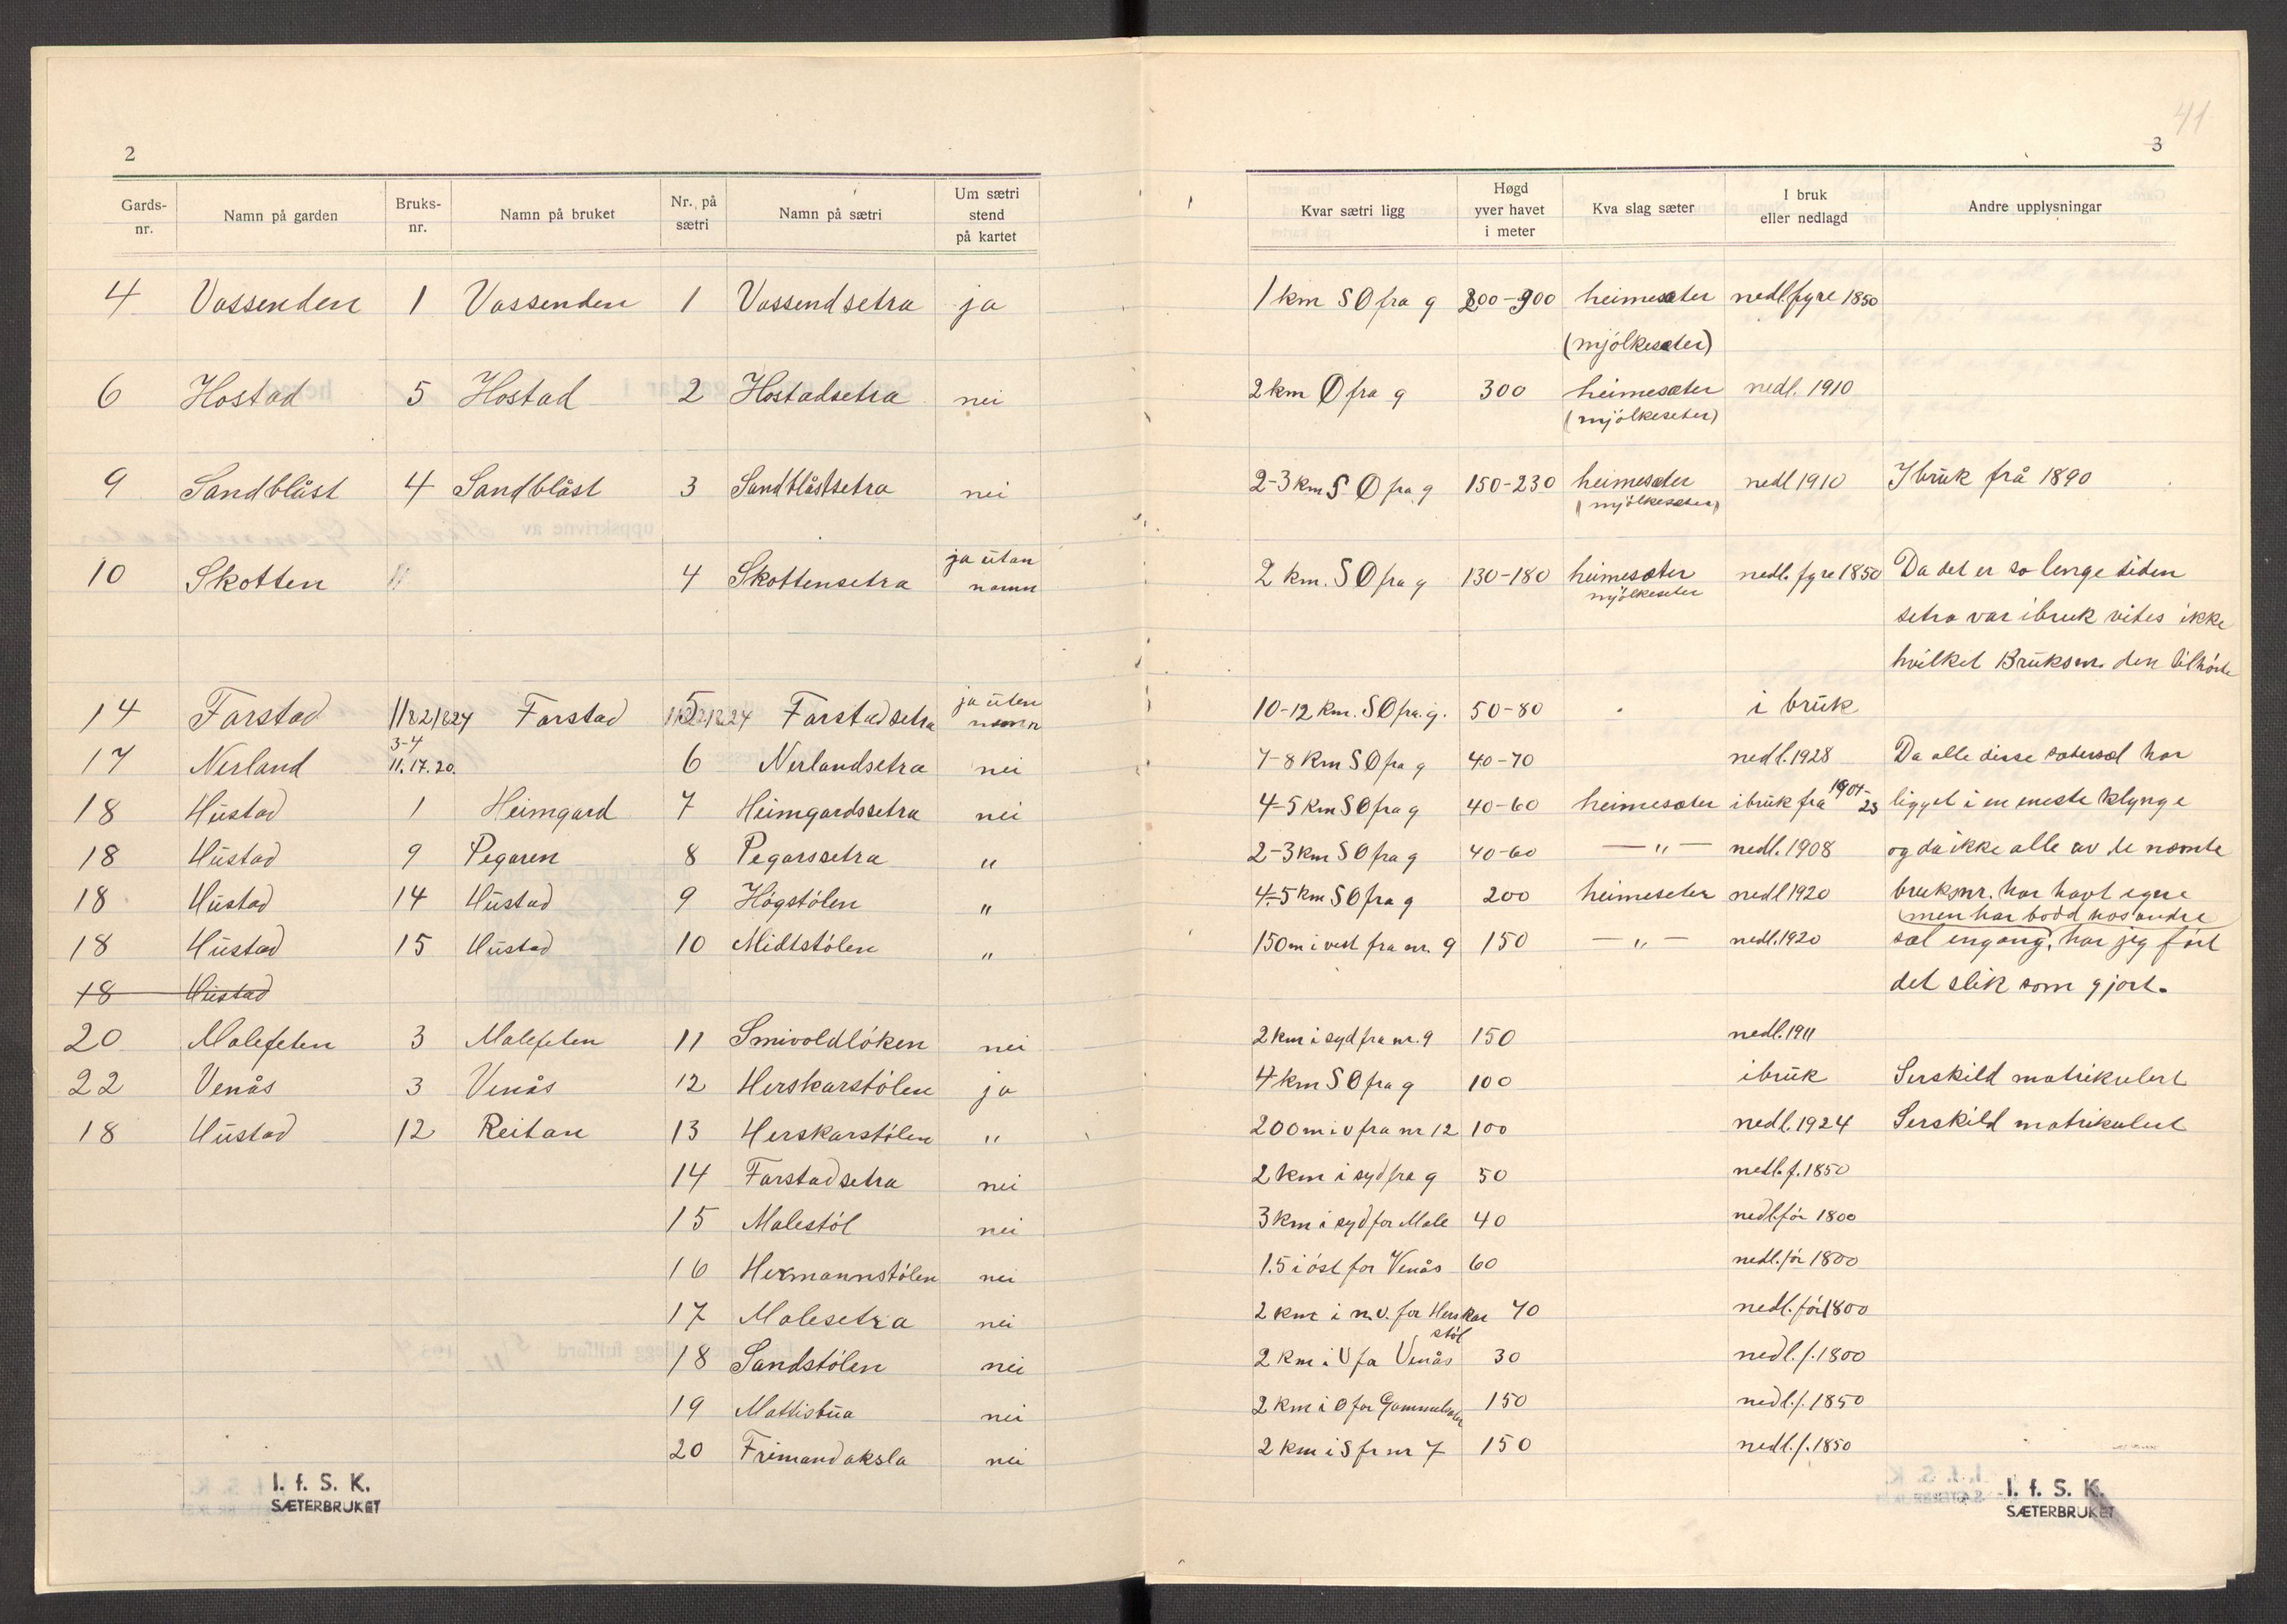 2
Gards-nr. Namn på garden Bruks-nr. Namn på bruket Nr. på sætri Namn på sætri Um sætri stend på kartet
4 Vassenden 1 Vassenden 1 Vassendsetra ja
6 Hostad 5 Hostad 2 Hostadsetra nei
9 Sandblåst 4 Sandblåst 3 Sandblåstsetra nei
10 Skotten 4 Skottensetra ja utan namn
14 Farstad Farstad 5 Farstadsetra ja uten namn
17 Nerland 3-4 11.17.20. 6 Nerlandsetra nei
18 Hustad 1 Heimgard 7 Heimgardssetra nei
18 Hustad 9 Pegaren 8 Pegarssetra "
18 Hustad 14 Hustad 9 Högstölen "
18 Hustad 15 Hustad 10 Midtstölen "
18 Hustad
20 Malefeten 3 Malefeten 11 Smivoldlöken nei
22 Venås 3 Venås 12 Herskarstölen ja
18 Hustad 12 Reitan 13 Herskarstölen "
14 Farstadsetra nei
15 Malestöl nei
16 Hermannstölen nei
17 Malesetra nei
18 Sandstölen nei
19 Mattisbua nei
20 Frimandaksla nei
I. f. S. K.
SÆTERBRUKET
41
3
Kvar sætri ligg Høgd yver havet i meter Kva slag sæter I bruk eller nedlagd Andre upplysningar
1 km SØ fra g 200-300 heimesæter nedl. fyre 1850
(mjölkesæter)
2 km Ø fra g 300 heimesæter nedl. 1910
(mjölkeseter)
2-3 km SØ fra g 150-230 heimesæter nedl 1910 I bruk frå 1890
(mjölkesæter)
2 km. SØ fra g 130-180 heimesæter nedl. fyre 1850 Da det er so lenge siden
mjölkeseter
setra var ibruk vites ikke
hvilket Bruksnr. den tilhörte
10-12 km. SØ fra. g. 50-80 i bruk
7-8 km SØ fra g 40-70 nedl. 1928 Da alle disse har
4-5 km SØ fra g 40-60 heimesæter ibruk fra 1901-23 ligget i en eneste klynge
2-3 km SØ fra g 40-60 —"— nedl. 1908 og da ikke alle av de næmte
4-5 km SØ fra g 200 heimeseter nedl 1920 bruksnr. har havt egne
(men har bodd hos andre
150 m i vest fra nr. 9 150 —"— nedl. 1920 sæl engang, har jeg fört
det slik som gjort.
2 km i syd fra nr. 9 150 nedl. 1911
4 km SØ fra g 100 ibruk Serskild matrikulert
200 m i v fra nr 12 100 nedl. 1924 Serskild matrikulert
2 km i syd fra g 50 nedl. f. 1850
3 km i syd for Male 40 nedl. för 1800
1.5 i öst for Venås 60 nedl. för 1800
2 km i n.v. for Herskarstöl 70 nedl. för 1800
2 km i V fa Venås 30 nedl. f. 1800
2 km i Ø for 150 nedl. f. 1850
2 km i S fr nr 7 150 nedl. f. 1850
I. f. S. K.
SÆTERBRUKET